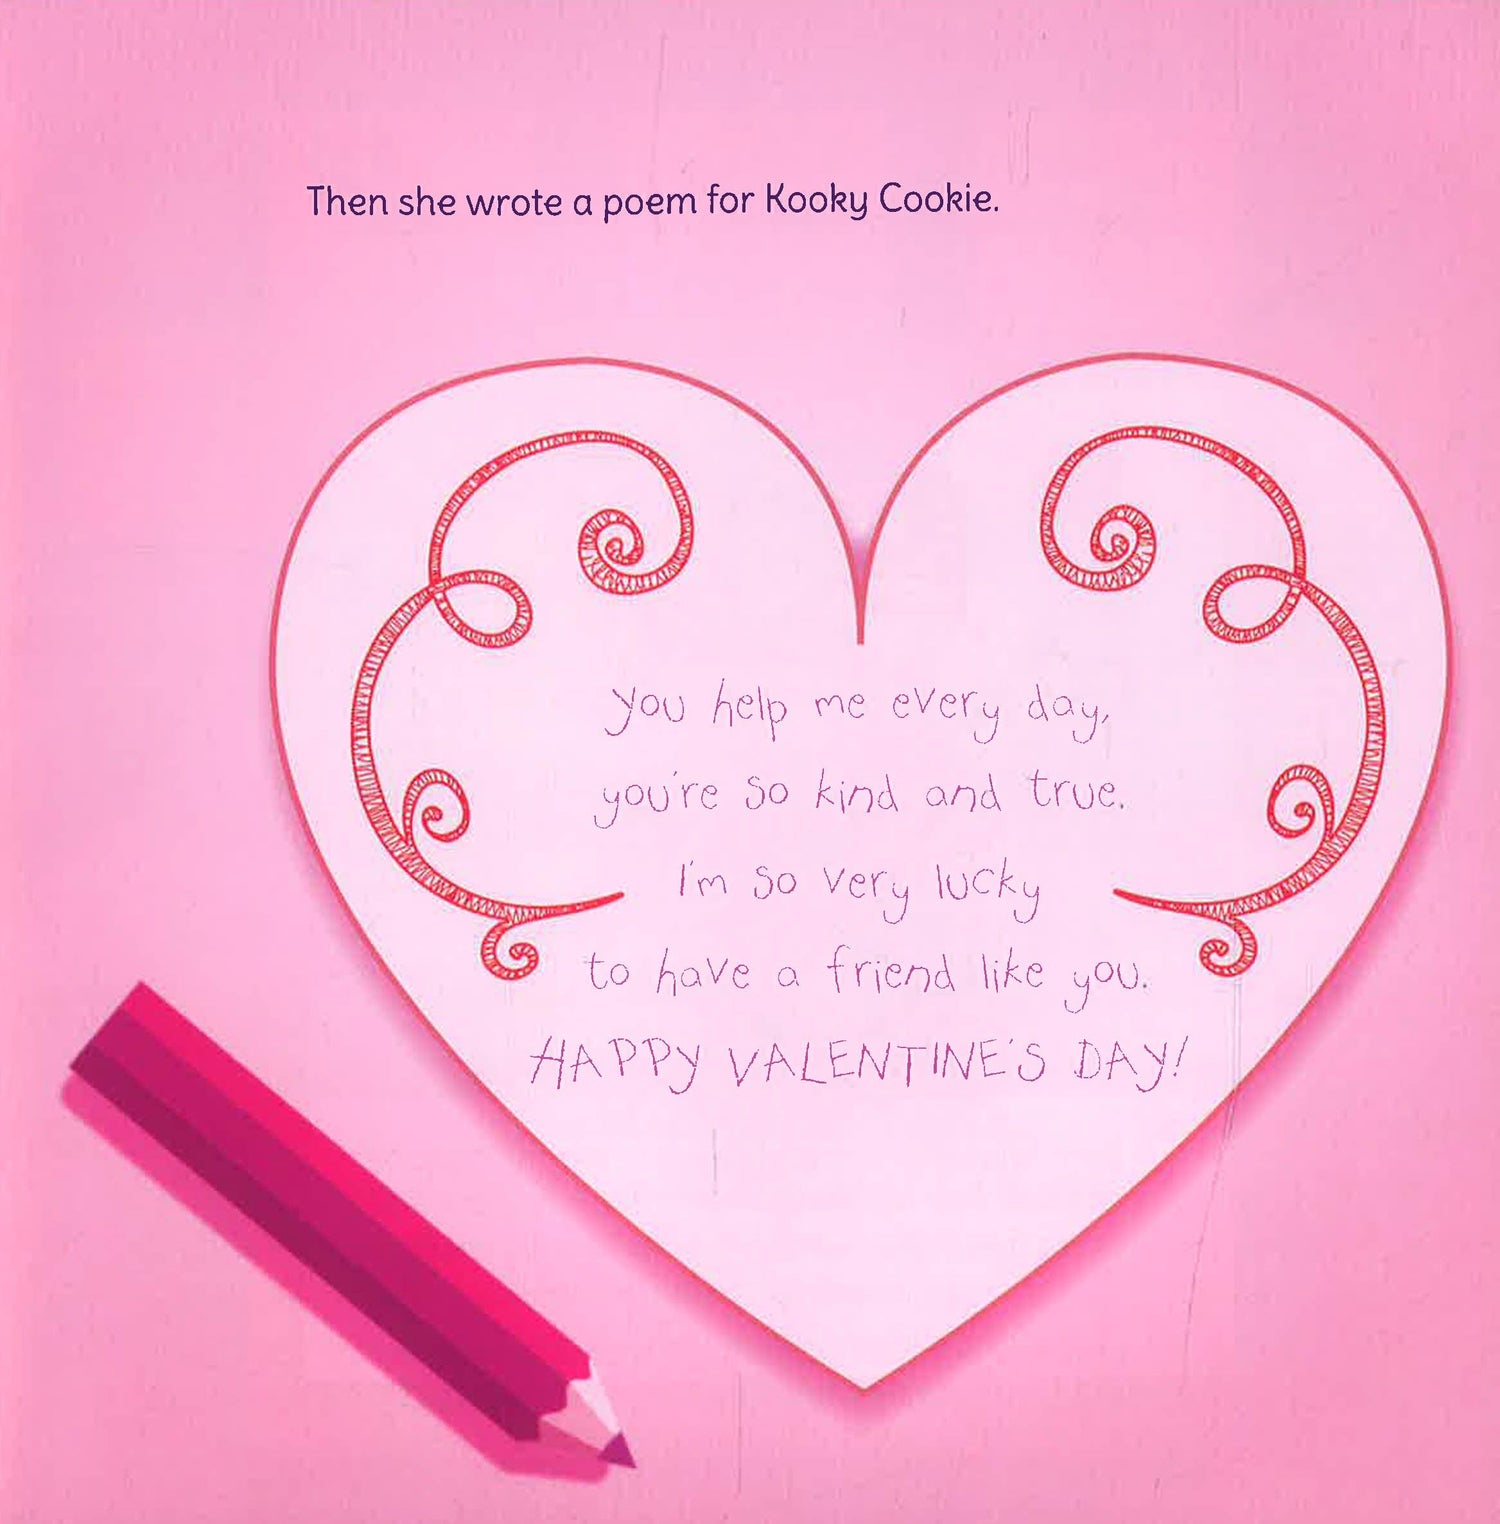 Then she wrote a poem for Kooky Cookie.
you help me every day,
you're so kind and true.
I'm so very lucky
to have a friend like you.
HAPPY VALENTINE'S DAY!